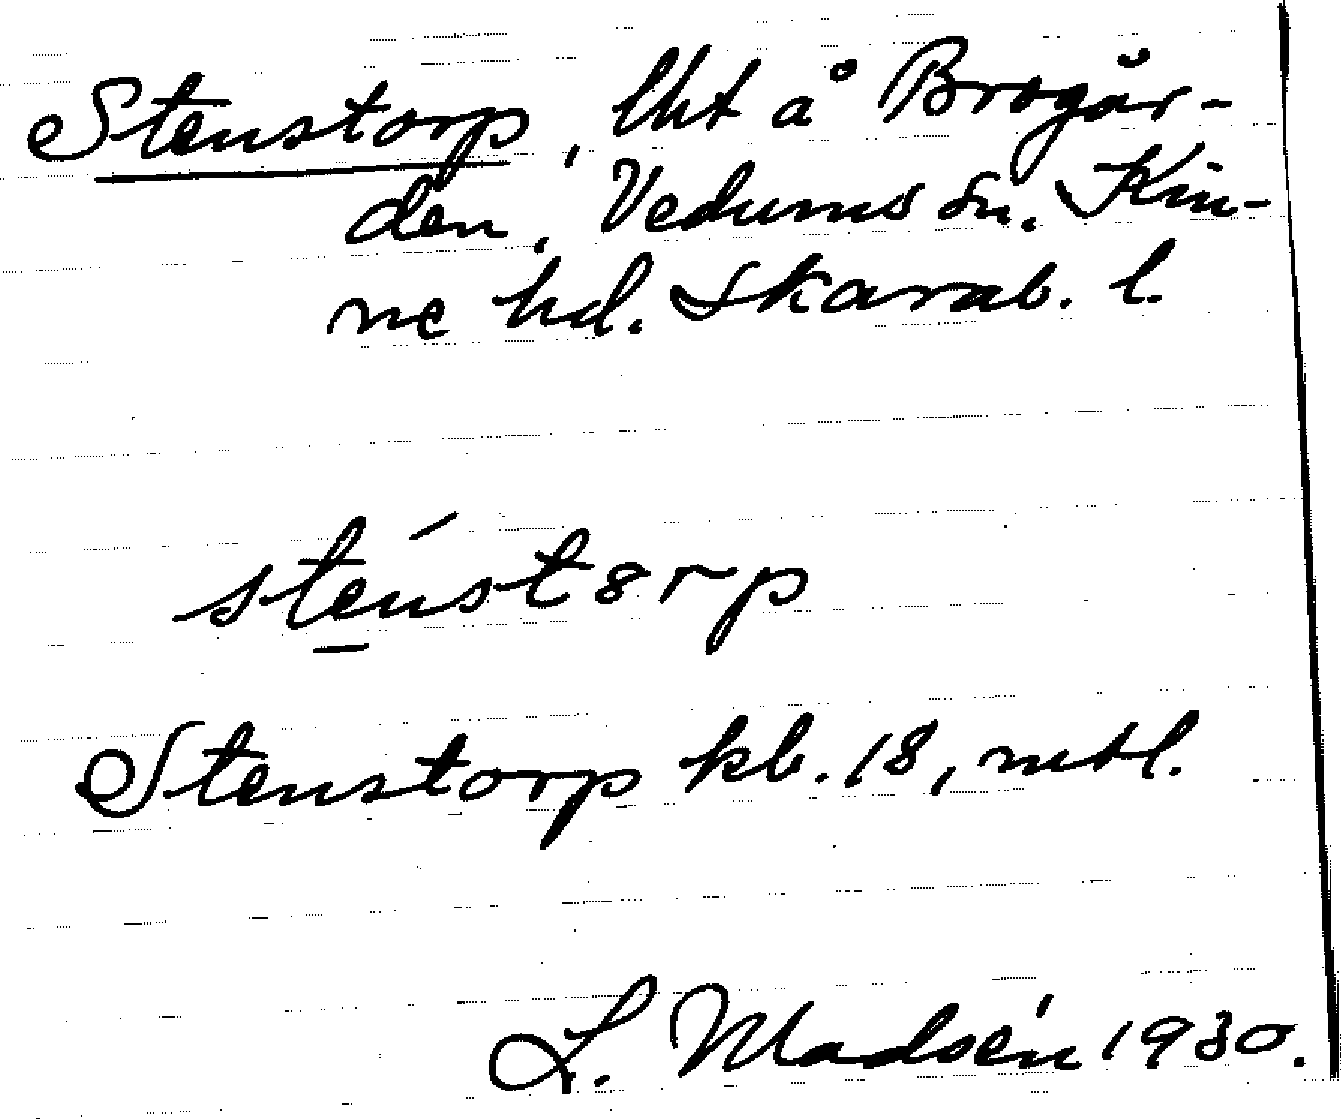 Stenstorp, lht å Brogår-
den, Vedums sn. Kin-
ne hd. Skarab. l.
sténstorp
Stenstorp kb. 18, mtl.
L. Madsén 1930.